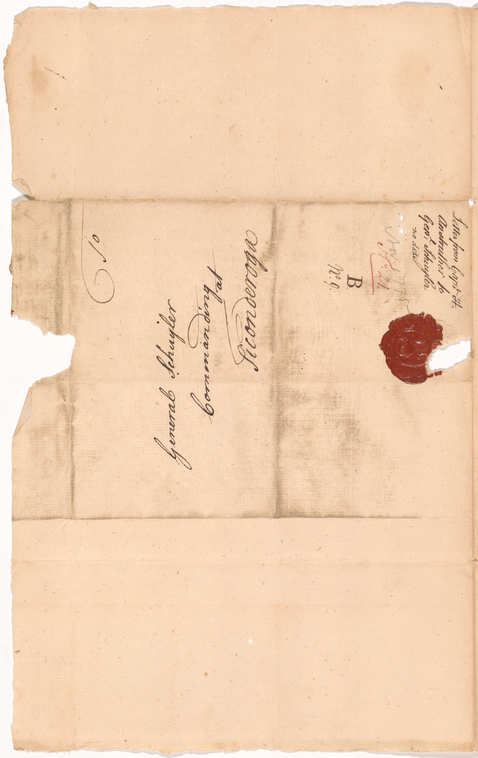 To
General Schuyler
Commanding at
Ticonderoga
Letter from Capt. H.
to
Genl. Schuyler
no date
B
No. 9.